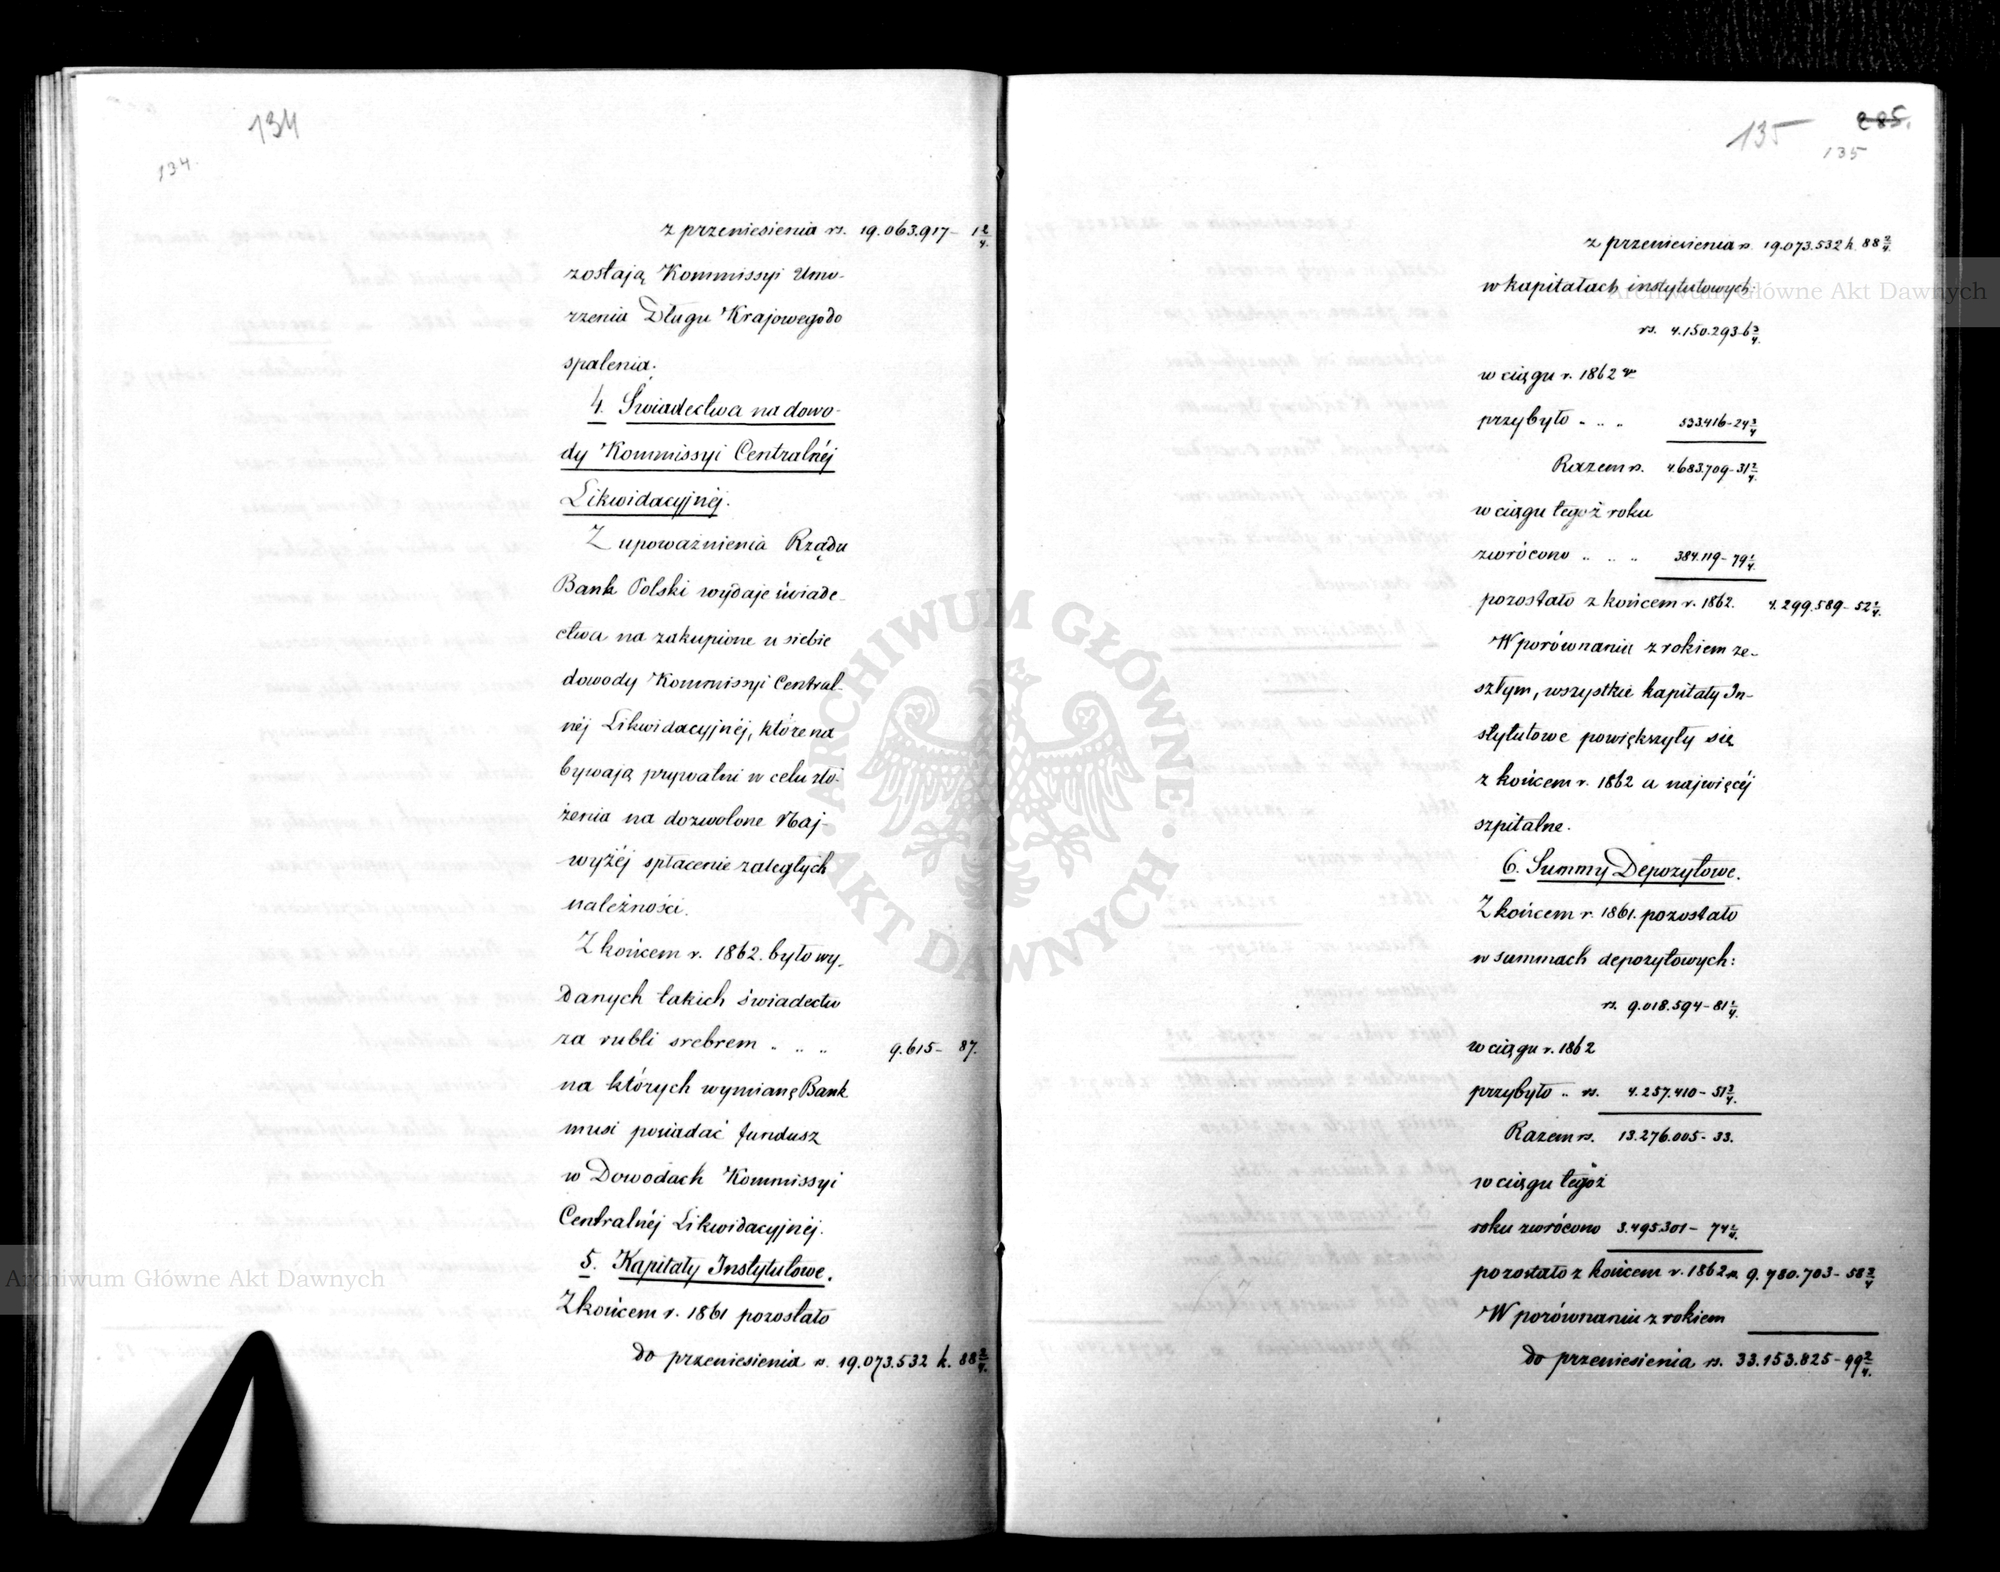 134
134.
z przeniesienia rs. 19.063.917 - 1 2/4.
zostają Kommissyi Umo-
rzenia Długu Krajowego do
spalenia.
4. Świadectwa na dowo-
dy Kommissyi Centralnéj
Likwidacyjnéj.
Z upoważnienia Rządu
Bank Polski wydaje świade-
ctwa na zakupione u siebie
dowody Kommissyi Central-
néj Likwidacyjnéj, które na
bywają prywatni w celu zło-
żenia na dozwolone Naj-
wyżéj spłacenie zaległych
należności.
Z końcem r. 1862. było wy-
danych takich świadectw
za rubli srebrem " " " 9.615 - 87.
na których wymianę Bank
musi posiadać fundusz
w Dowodach Kommissyi
Centralnéj Likwidacyjnéj.
5. Kapitały Instytutowe.
Z końcem r. 1861 pozostało
do przeniesienia rs. 19.073.532 k. 88 2/4.
285.
135
135
z przeniesienia rs. 19.073.532 k. 88 2/4.
w kapitałach instytutowych:
rs. 4.150.293 - 6 3/4.
w ciągu r. 1862 go
przybyło " " " 533.416 - 24 3/4
Razem rs. 4.683.709 - 31 2/4.
w ciągu tegoż roku
zwrócono " " " 384.119 - 79 1/4.
pozostało z końcem r. 1862. 4.299.589 - 52 1/4.
W porównaniu z rokiem ze-
szłym, wszystkie kapitały In-
stytutowe powiększyły się
z końcem r. 1862 a najwięcéj
szpitalne.
6. Summy Depozytowe.
Z końcem r. 1861. pozostało
w summach depozytowych:
rs. 9.018.594 - 81 1/4.
w ciągu r. 1862
przybyło " rs. 4.257.410 - 51 3/4.
Razem rs. 13.276.005 - 33.
w ciągu tegoż
roku zwrócono 3.495.301 - 74 1/4.
pozostało z końcem r. 1862 rs. 9.780.703 - 58 3/4
W porównaniu z rokiem
do przeniesienia rs. 33.153.825 - 99 2/4.
ARCHIWUM GŁÓWNE · AKT DAWNYCH ·
Archiwum Główne Akt Dawnych
Archiwum Główne Akt Dawnych